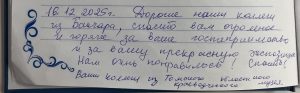 16.12.2025г. Дорогие наши коллеги
из Бакчара, спасибо вам огромное
и горячее за ваше гостеприимство
и за вашу прекрасную экспозицию
Нам очень понравилось! Спасибо!
Ваши коллеги из Томского областного
краеведческого музея.